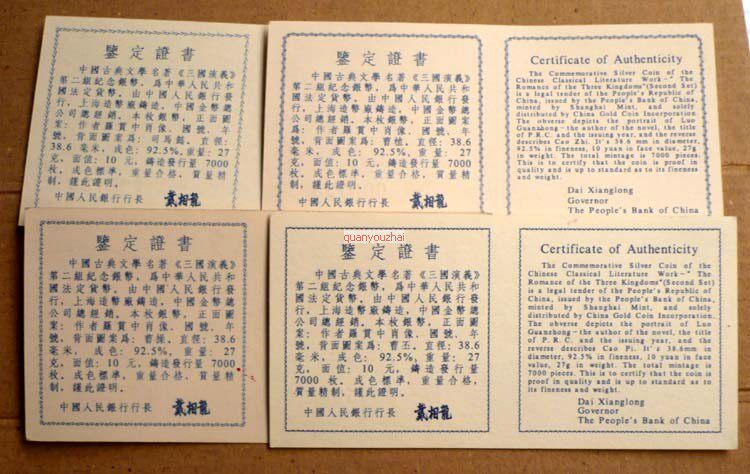 鑒定證書
中國古典文學名著《三國演義》
第二組紀念銀幣，爲中華人民共和
國法定貨幣。由中國人民銀行發
行，上海造幣廠鑄造，中國金幣總
公司總經銷。本枚銀幣，正面圖
案：作者羅貫中肖像、國號、年
號，背面圖案爲：司馬懿。直徑：
38.6 毫米，成色：92.5%，重量：27
克，面值：10 元，鑄造發行量 7000
枚。成色標準，重量合格，質量精
制，謹此證明。
中國人民銀行行長 戴相龍
鑒定證書
中國古典文學名著《三國演義》
第二組紀念銀幣，爲中華人民共和
國法定貨幣。由中國人民銀行發
行，上海造幣廠鑄造，中國金幣總公
司總經銷。本枚銀幣，正面圖案
爲：作者羅貫中肖像、國號、年
號，背面圖案爲：曹植。直徑：
38.6 毫米，成色：92.5%，重量：27
克，面值：10 元，鑄造發行量 7000
枚。成色標準，重量合格，質量精
制，謹此證明。
中國人民銀行行長 戴相龍
Certificate of Authenticity
The Commemorative Silver Coin of the
Chinese Classical Literature Work—"The
Romance of the Three Kingdoms"(Second Set)
is a legal tender of the People's Republic of
China, issued by the People's Bank of China,
minted by Shanghai Mint, and solely
distributed by China Gold Coin Incorporation.
The obverse depicts the portrait of Luo
Guanzhong—the author of the novel, the title
of P.R.C. and the issuing year, and the reverse
describes Cao Zhi. It's 38.6 mm in diameter,
92.5% in fineness, 10 yuan in face value, 27g
in weight. The total mintage is 7000 pieces.
This is to certify that the coin is proof in
quality and is up to standard as to its fineness
and weight.
Dai Xianglong
Governor
The People's Bank of China
quanyouzhai
鑒定證書
中國古典文學名著《三國演義》
第二組紀念銀幣，爲中華人民共和
國法定貨幣。由中國人民銀行發
行，上海造幣廠鑄造，中國金幣總
公司總經銷。本枚銀幣，正面圖
案：作者羅貫中肖像、國號、年
號，背面圖案爲：曹操。直徑：38.6
毫米，成色：92.5%，重量：27
克，面值：10 元，鑄造發行量
7000 枚。成色標準，重量合格，質量
精制，謹此證明。
中國人民銀行行長 戴相龍
鑒定證書
中國古典文學名著《三國演義》
第二組紀念銀幣，爲中華人民共和
國法定貨幣。由中國人民銀行發
行，上海造幣廠鑄造，中國金幣總
公司總經銷。本枚銀幣，正面圖
案：作者羅貫中肖像、國號、年
號，背面圖案爲：曹丕。直徑：38.6
毫米，成色：92.5%，重量：27
克，面值：10 元，鑄造發行量
7000 枚。成色標準，重量合格，
質量精制，謹此證明。
中國人民銀行行長 戴相龍
Certificate of Authenticity
The Commemorative Silver Coin of the
Chinese Classical Literature Work—"The
Romance of the Three Kingdoms"(Second Set)
is a legal tender of the People's Republic of
China, issued by the People's Bank of China,
minted by Shanghai Mint, and solely
distributed by China Gold Coin Incorporation.
The obverse depicts the portrait of Luo
Guanzhong—the author of the novel, the title
of P.R.C. and the issuing year, and the
reverse describes Cao Pi. It's 38.6mm in
diameter, 92.5% in fineness, 10 yuan in face
value, 27g in weight. The total mintage is
7000 pieces. This is to certify that the coin is
proof in quality and is up to standard as to
its fineness and weight.
Dai Xianglong
Governor
The People's Bank of China